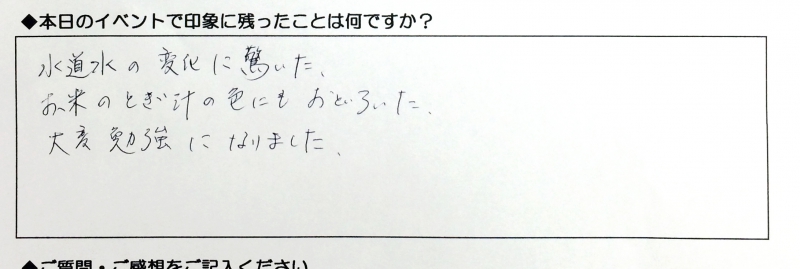 ◆本日のイベントで印象に残ったことは何ですか？
水道水の変化に驚いた、
お米のとぎ汁の色にもおどろいた、
大変勉強になりました、
◆ご質問・ご感想をご記入ください